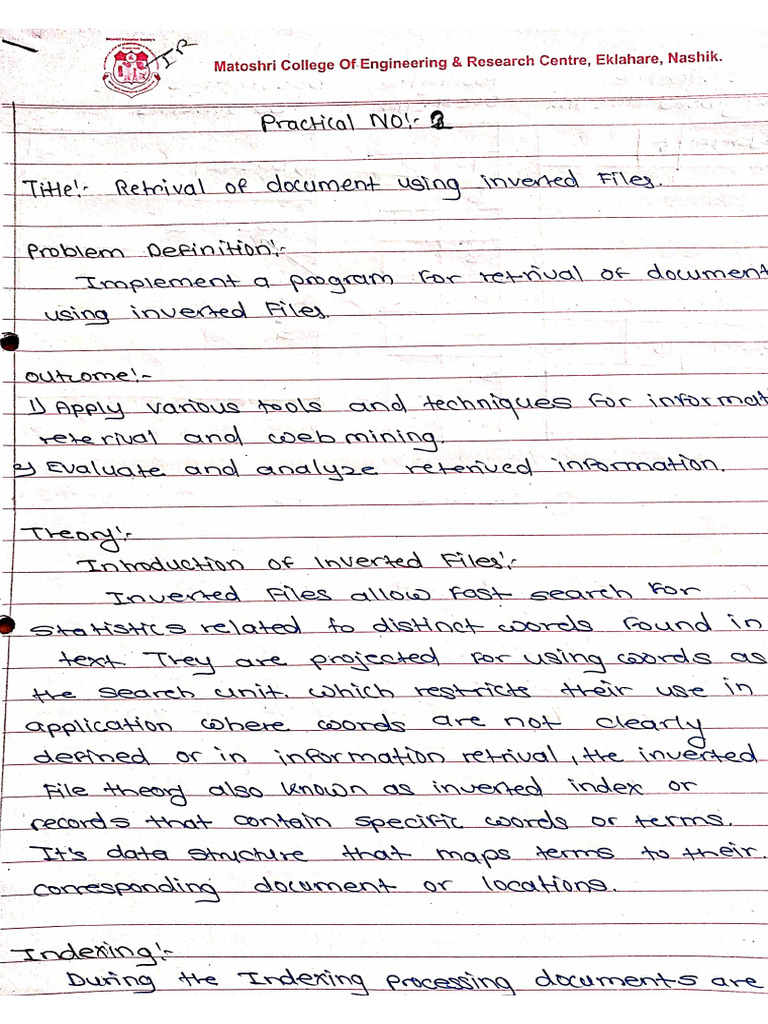 Matoshri Education Society's
IR
Matoshri College Of Engineering & Research Centre, Eklahare, Nashik.
Practical NO:- 2
Title:- Retrival of document using inverted Files.
Problem Definition:-
Implement a program for retrival of document
using inverted Files.
Outcome:-
1) Apply various tools and techniques for informat
reterival and web mining.
2) Evaluate and analyze reterived information.
Theory:-
Introduction of Inverted Files:-
Inverted Files allow fast search for
statistics related to distinct words found in
text They are projected for using words as
the search unit. which restricts their use in
application where words are not clearly
defined or in information retrival, the inverted
File theory also known as inverted index or
records that contain specific words or terms.
It's data structure that maps terms to their
corresponding document or locations.
Indexing:-
During the Indexing processing documents are